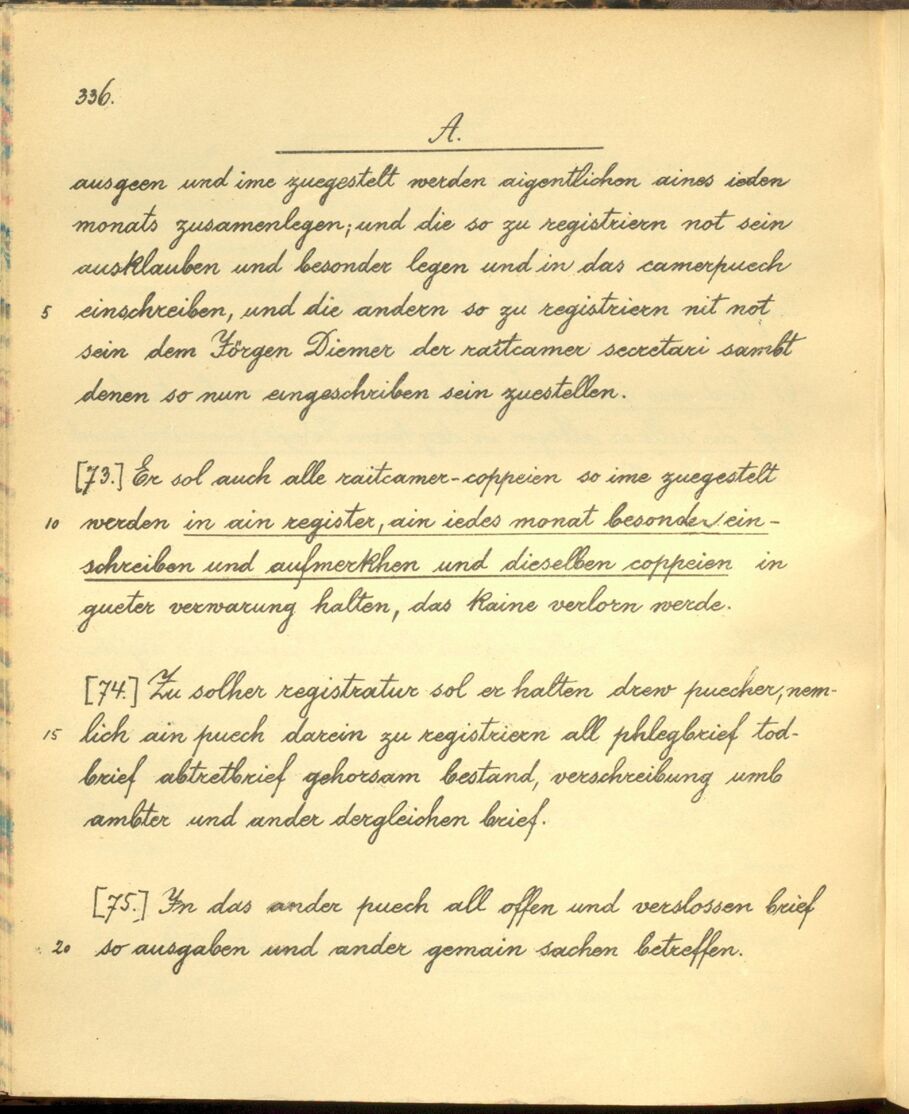 336.
A.
ausgeen und ime zuegestelt werden aigentlichen aines ieden
monats zusamenlegen; und die so zu registriern not sein
ausklauben und besonder legen und in das camerpuech
5 einschreiben, und die andern so zu registriern nit not
sein dem Jörgen Diemer der raitcamer secretari sambt
denen so nun eingeschriben sein zuestellen.
[73.] Er sol auch alle raitcamer-coppeien so ime zuegestelt
10 werden in ain register, ain iedes monat besonder ein-
schreiben und aufmerkhen und dieselben coppeien in
gueter verwarung halten, das kaine verlorn werde.
[74.] Zu solher registratur sol er halten drew puecher, nem-
15 lich ain puech darein zu registriern all phlegbrief tod-
brief abtretbrief gehorsam bestand, verschreibung umb
ambter und ander dergleichen brief.
[75.] In das ander puech all offen und verslossen brief
20 so ausgaben und ander gemain sachen betreffen.